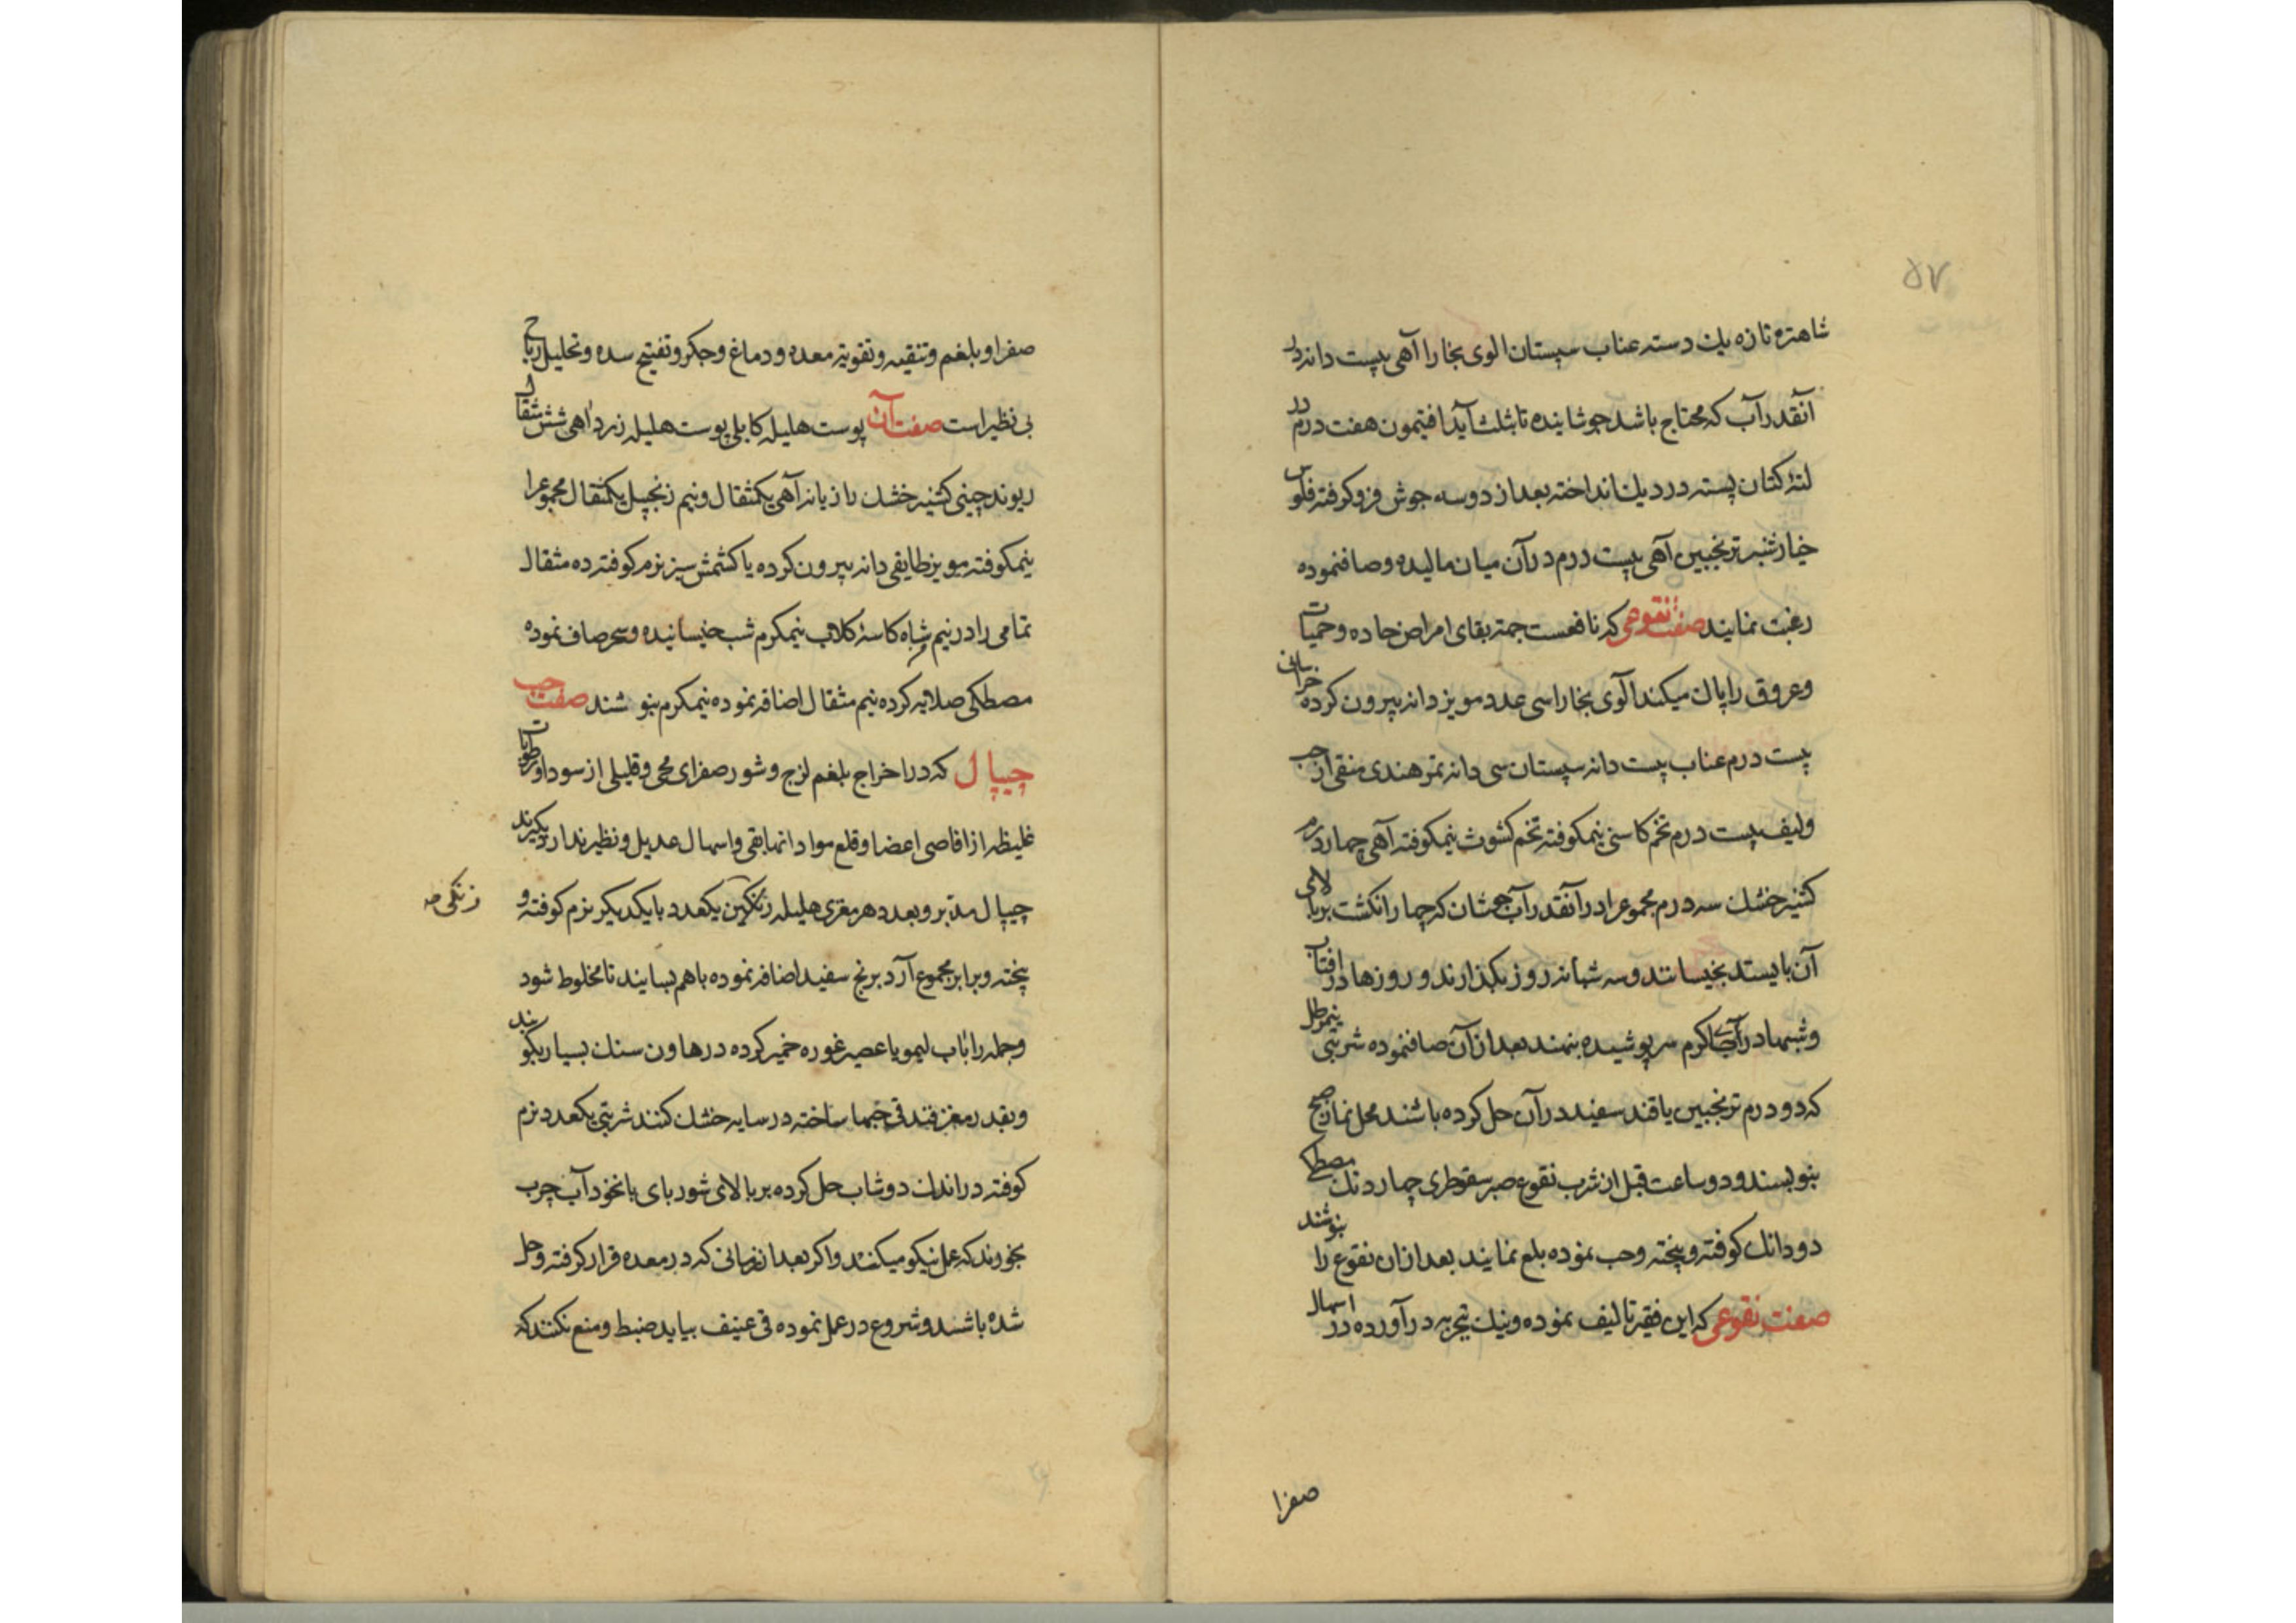 ۵۷
شاهتره تازه یك دسته عناب سپستان الوی بخارا آهی بیست دانه در
آنقدر آب که محتاج باشد جوشاینده تا بثلث آید افتیمون هفت درم در
لتهٔ کتان بسته در دیك انداخته بعد از دو سه جوش فرو کرفته فلوس
خیارشنبر ترنجبین آهی بیست درم در آن میان مالیده و صافنموده
رغبت نمایند صفت نقوعی که نافعست جهة بقای امراض حاده و حمیات
و عروق را پاك میکند آلوی بخارا سی عدد مویز دانه بیرون کرده خراسانی
بیست درم عناب بیست دانه سپستان سی دانه تمر هندی منقی از حب
و لیف بیست درم تخم کاسنی نیمکوفته تخم کشوث نیمکوفته آهی چهار درم
کشنیز خشك سه درم مجموعرا در آنقدر آب جوشان که چهار انکشت بر بالای
آن بایستد بخیسانند و سه شبانه روز بکذارند و روزها در افتاب
و شبها در آب کرم سرپوشیده بنهند بعد از آن صافنموده شربتی نیمرطل
که دو درم ترنجبین یا قند سفید در آن حل کرده باشند محل نماز صبح
بنوبسند و دو ساعت قبل از شرب نقوع صبر سقوطری چهار دنك مصطکی
دو دانك کوفته و بیخته و حب نموده بلع نمایند بعد از ان نقوع را بنوشند
صفت نقوعی که این فقیر تالیف نموده و نیك تجربه در آورده در اسهال
صفرا
صفرا و بلغم و تنقیه و تقویة معده و دماغ و جکر و تفتیح سده و تحلیل ریاح
بی نظیر است صفت آن پوست هلیله کابلی پوست هلیله زرد آهی شش مثقال
ریوند چینی کشنیز خشك رازیانه آهی یکمثقال و نیم زنجبیل یکمثقال مجموعرا
نیمکوفته مویز طایفی دانه بیرون کرده یا کشمش سبز نرم کوفته ده مثقال
تمامی را در نیم شاه کاسهٔ کلاب نیمکرم شب خیسانیده و سحر صاف نموده
مصطکی صلایه کرده نیم مثقال اضافه نموده نیمکرم بنوشند صفت حب
جیپال که در اخراج بلغم لزج و شور صفرای محی و قلیلی از سودا و رطوبات
غلیظه از اقاصی اعضا و قلع مواد انها بقی و اسهال عدیل و نظیر ندارد بکیرند
جیپال مدبر و بعدد هر مغزی هلیله زنکین یکعدد با یکدیکر نرم کوفته و
زنکی صه
بیخته و برابر مجموع آرد برنج سفید اضافه نموده باهم بسایند تا مخلوط شود
و جمله را باب لیمو یا عصیر غوره خمیر کرده در هاون سنك بسیار بکوبند
و بقدر مغز فندقی حبها ساخته در سایه خشك کنند شربتی یکعدد نرم
کوفته در اندك دوشاب حل کرده بر بالای شوربای با نخود آب چرب
بخورند که عمل نیکو میکند و اکر بعد از زمانی که در معده قرار کرفته و حل
شده باشد و شروع در عمل نموده قی عنیف بیاید ضبط و منع نکنند که